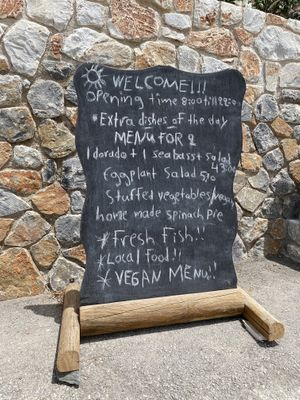 WELCOME!!!
Opening time 8:00 till 22:00
*Extra dishes of the day
MENU FOR 2
1 dorado + 1 seabass + salad
43,00
Eggplant Salad 5,0
Stuffed vegetables/vegan
home made spinach pie
* Fresh Fish!!
* Local food!!
* VEGAN MENU!!